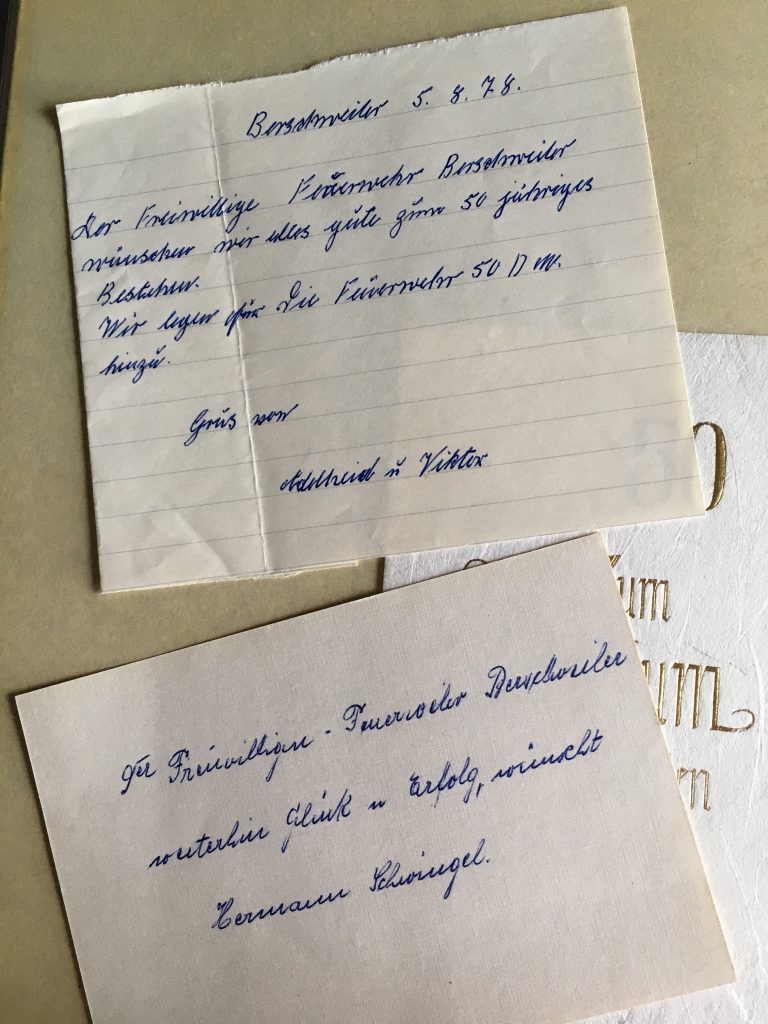 Berschweiler 5. 8. 78.
Der Freiwillige Feuerwehr Berschweiler
wünschen wir alles gute zum 50 jähriges
Bestehen.
Wir legen für die Feuerwehr 50 DM.
hinzu.
Grus von
Adelheid u Viktor
50
Zum
um
en
Der Freiwilligen - Feuerwehr Berschweiler
weiterhin Glück u Erfolg, wünscht
Hermann Schwingel.